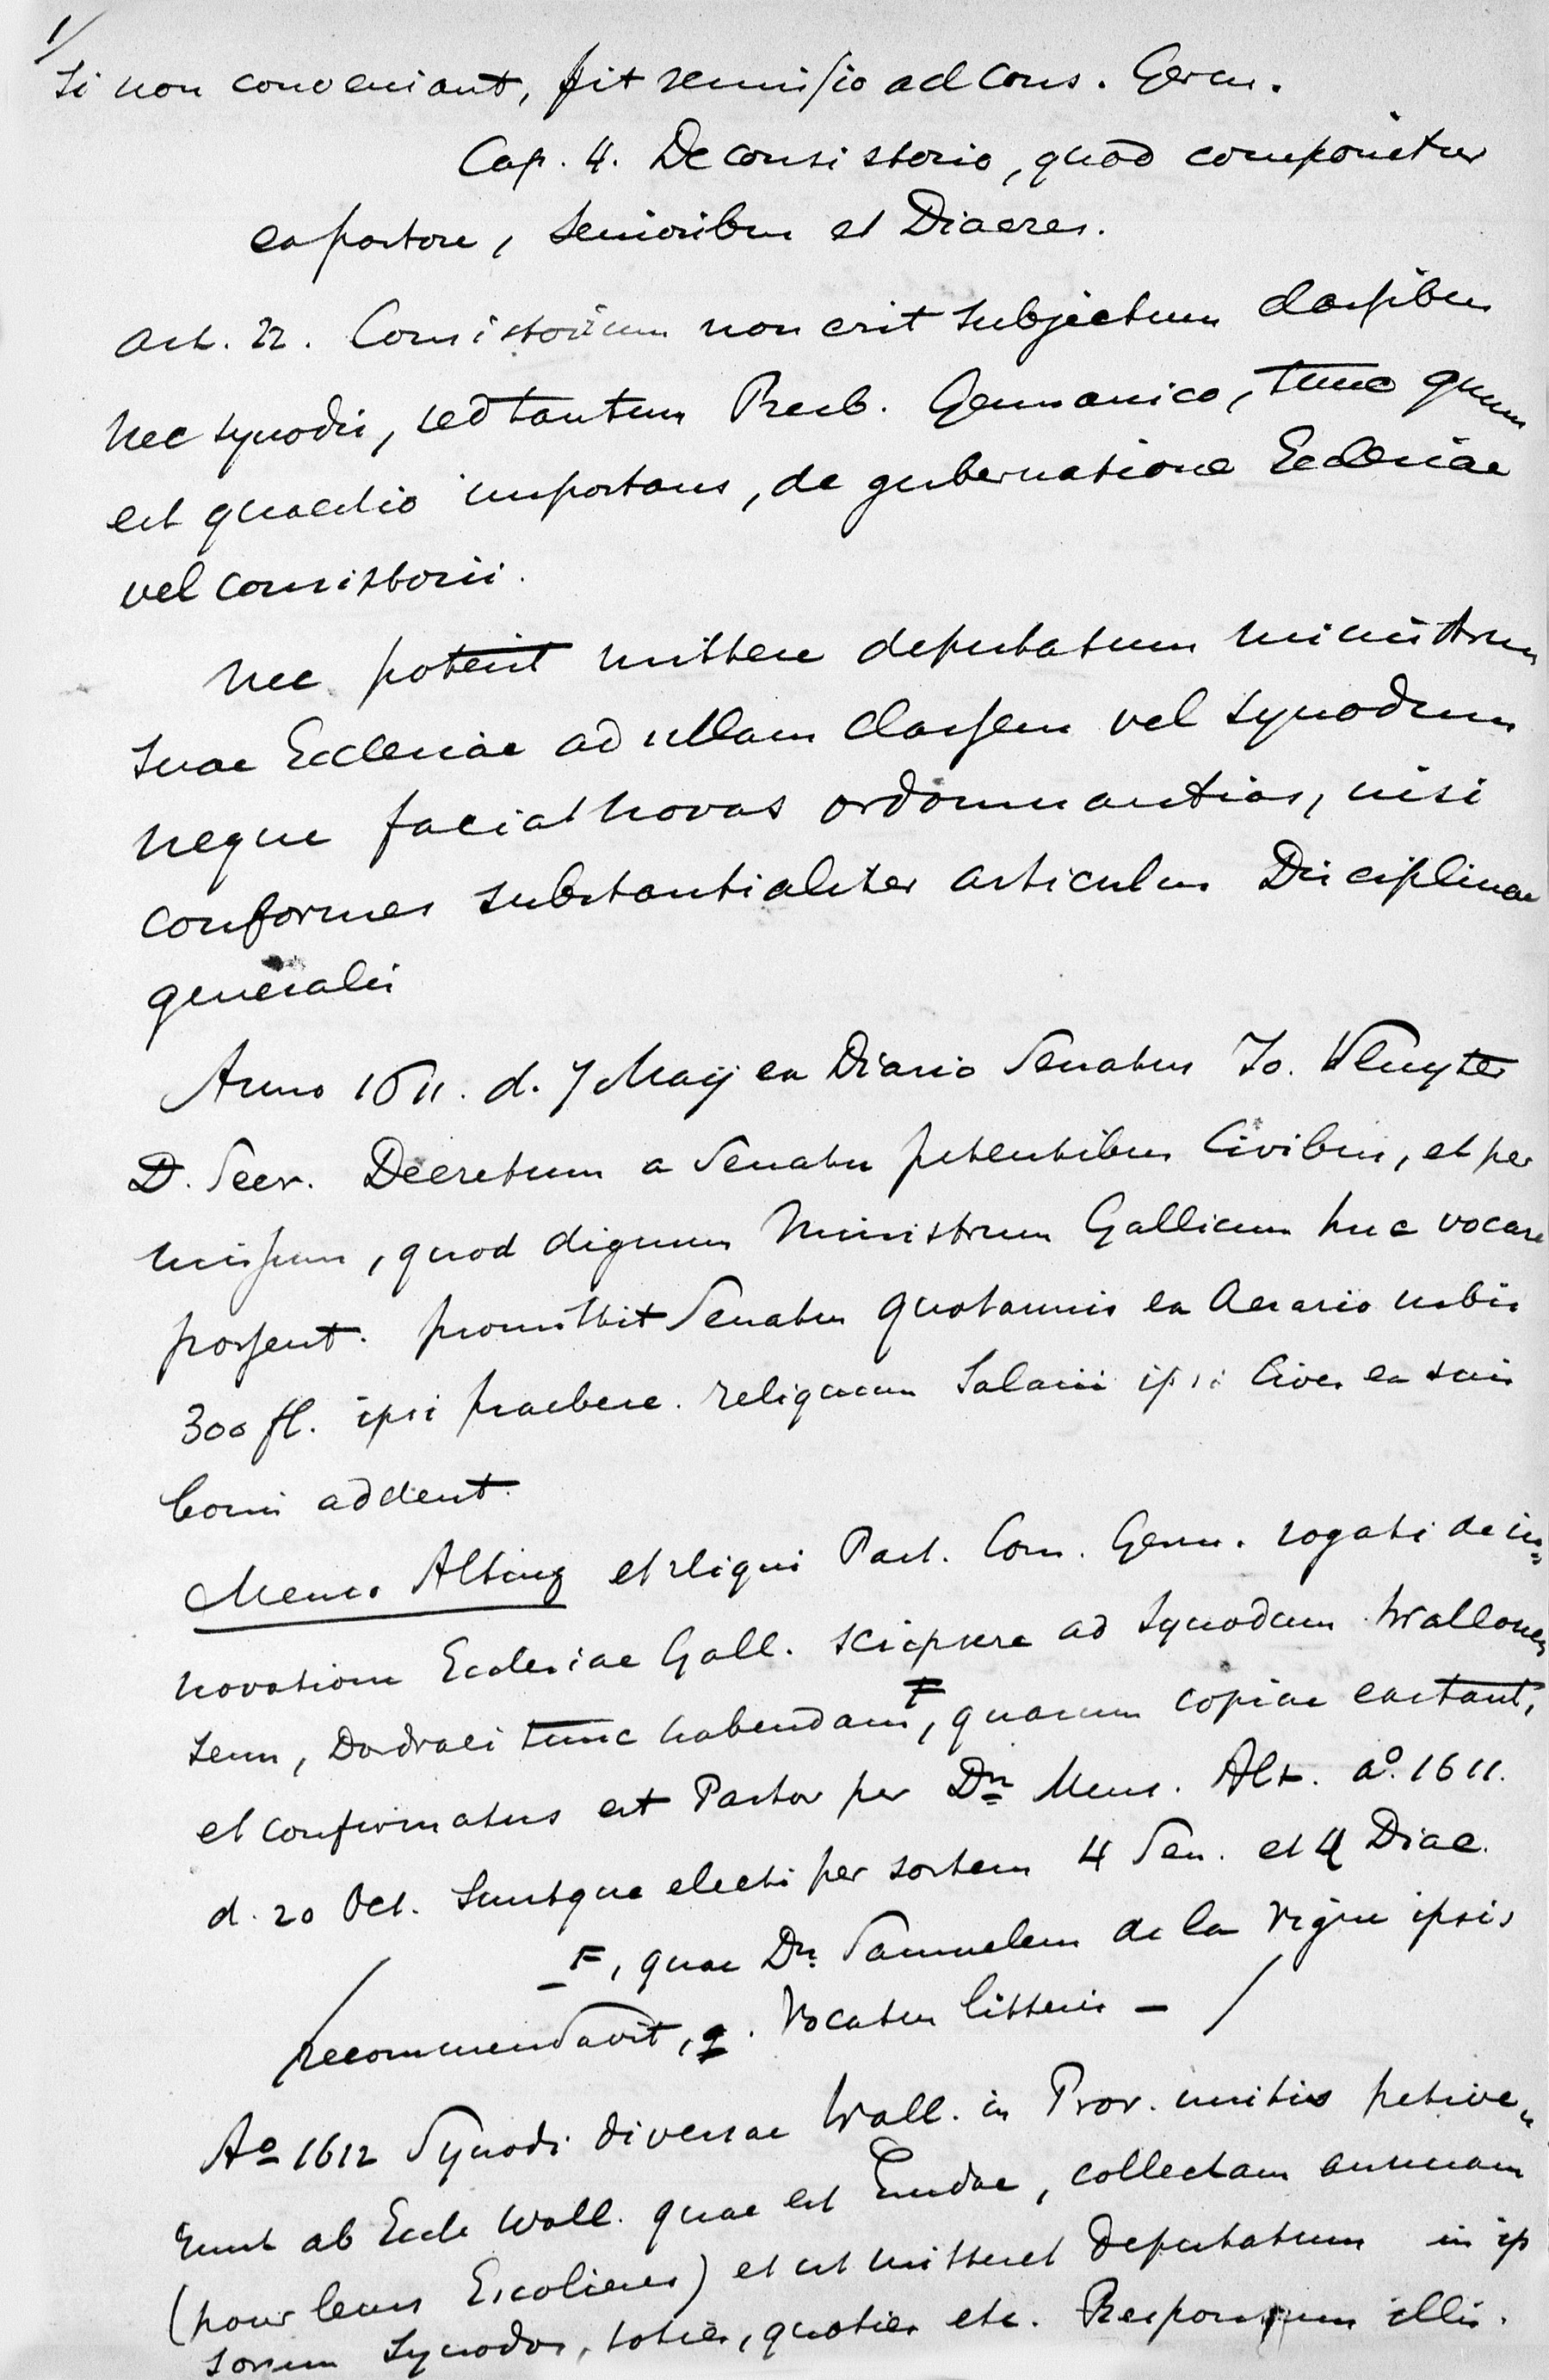 1/
Si non conveniant, fit remissio ad Cons. Germ.
Cap. 4. De consistorio, quod componitur
ex pastore, Senioribus et Diacres.
Art. 22. Consistorium non erit subjectum classibus
nec synodis, sed tantum Presb. Germanico, tunc quum
est quaestio importans, de gubernatione Ecclesiae
vel consistorii.
Nec poterit mittere deputatum ministrum
suae Ecclesiae ad ullam classem vel synodum
neque faciat novas ordonnantias, nisi
conformes substantialiter articulis Disciplinae
generalis
Anno 1611. d. 7 Maij ex Diario Senatus Jo. Wluyter
D. Secr. Decretum a Senatu petentibus Civibus, et per
missum, quod dignum Ministrum Gallicum huc vocare
possent. promittit Senatus quotannis ex Aerario urbis
300 fl. ipsi praebere. reliquum Salarii ipsi Cives ex suis
bonis addent.
Menso Alting et rliqui Past. Con. Germ. rogati de in=
novatione Ecclesiae Gall. scripsere ad synodum Wallonen
sem, Dordraci tunc habendam F, quarum copiae exstant,
et confirmatus est Pastor per Dn Mens. Alt. a°. 1611.
d. 20 Oct. Suntque electi per sortem 4 Sen. et 4 Diac.
F, quae Dn. Samuelem de la Vigne ipsis
/ recommendavit, q. Vocatus litteris – /
A° 1612 Synodi diversae Wall. in Prov. unitis petive„
runt ab Eccle Wall. quae est Emdae, collectam annuam
(pour leurs Escolieres) et ut mitteret deputatum in ip
sorum synodos, toties, quoties etc. Responsum illis.